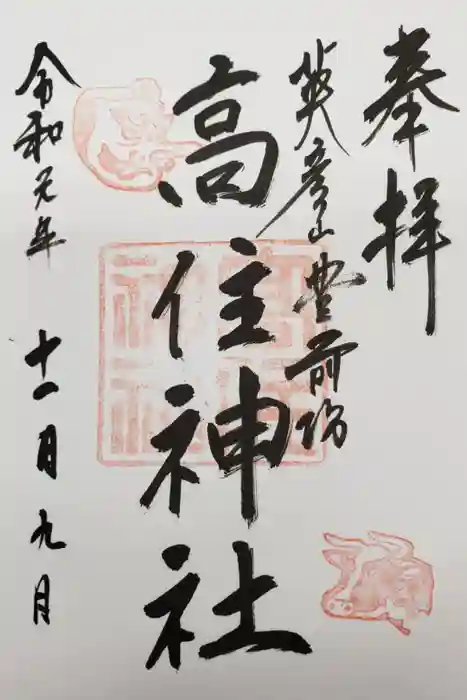 奉拝
英彦山豊前坊
高住神社
令和元年十一月九月